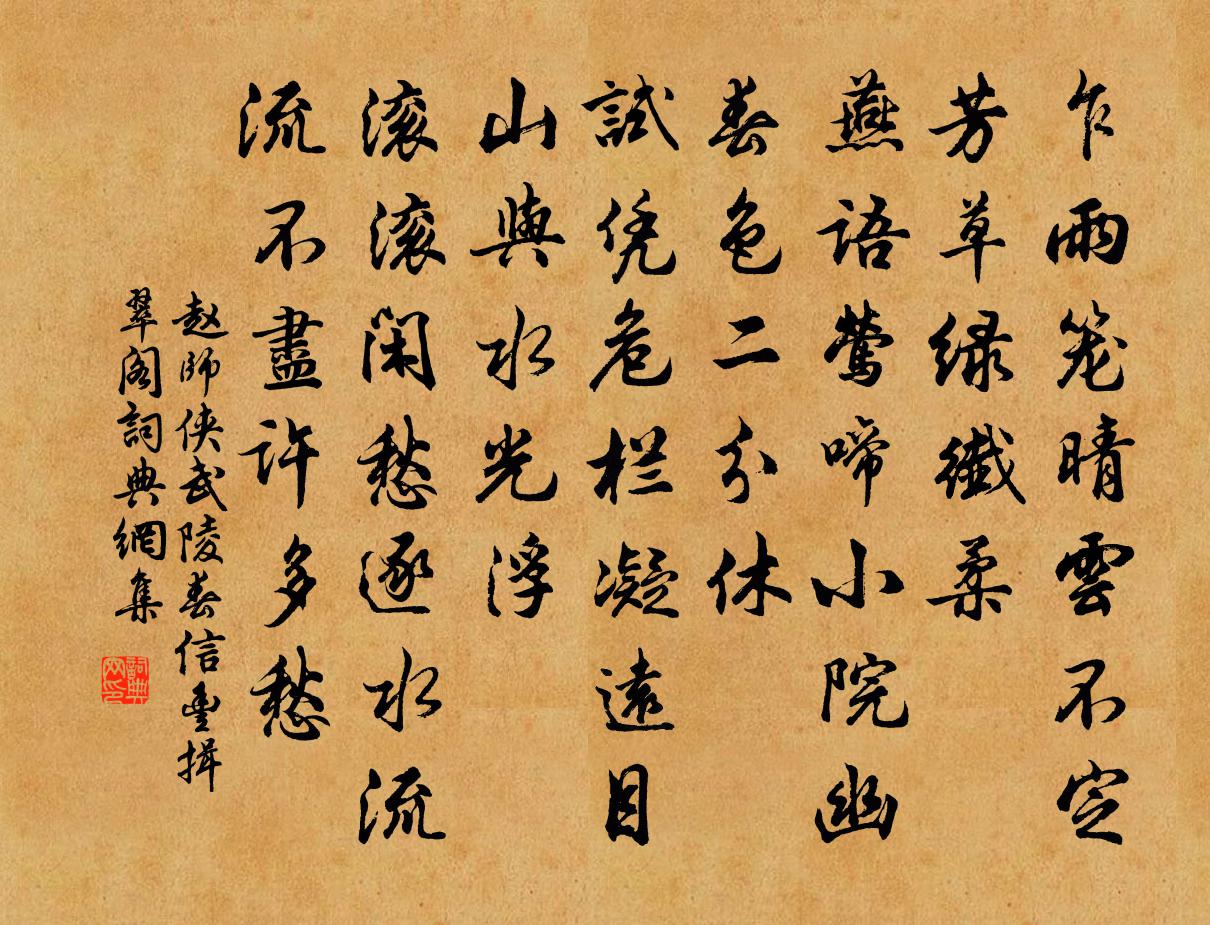 乍雨笼晴雲不定
芳草绿纖柔
燕語鶯啼小院幽
春色二分休
試凭危栏凝遠目
山與水光浮
滚滚闲愁逐水流
流不盡許多愁
赵師侠武陵春信豊揖
翠阁詞典網集
詞典
网印